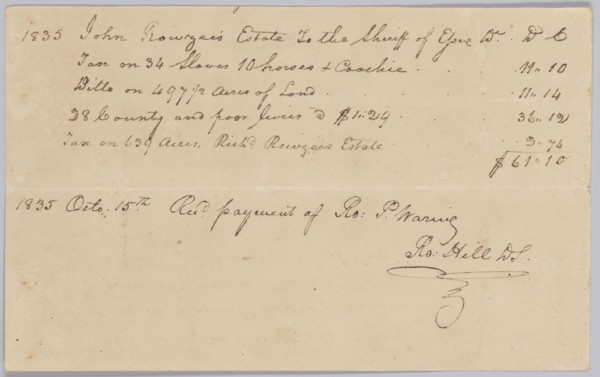 1835 John Rowzee's Estate To the Shiriff of Essex Dr. D C
Tax on 34 Slaves 10 horses & Coachie . . 11.. 10
Ditto on 497 1/2 Acres of Land . . . . 11.. 14
28 County and poor levies @ $1.. 29 . . 36.. 12
Tax on 630 Acres, Richd Rowzees Estate . . 2.. 74
$61.. 10
1835 Octo. 15th Recd payment of Ro: P. Waring
Ro: Hill DS.